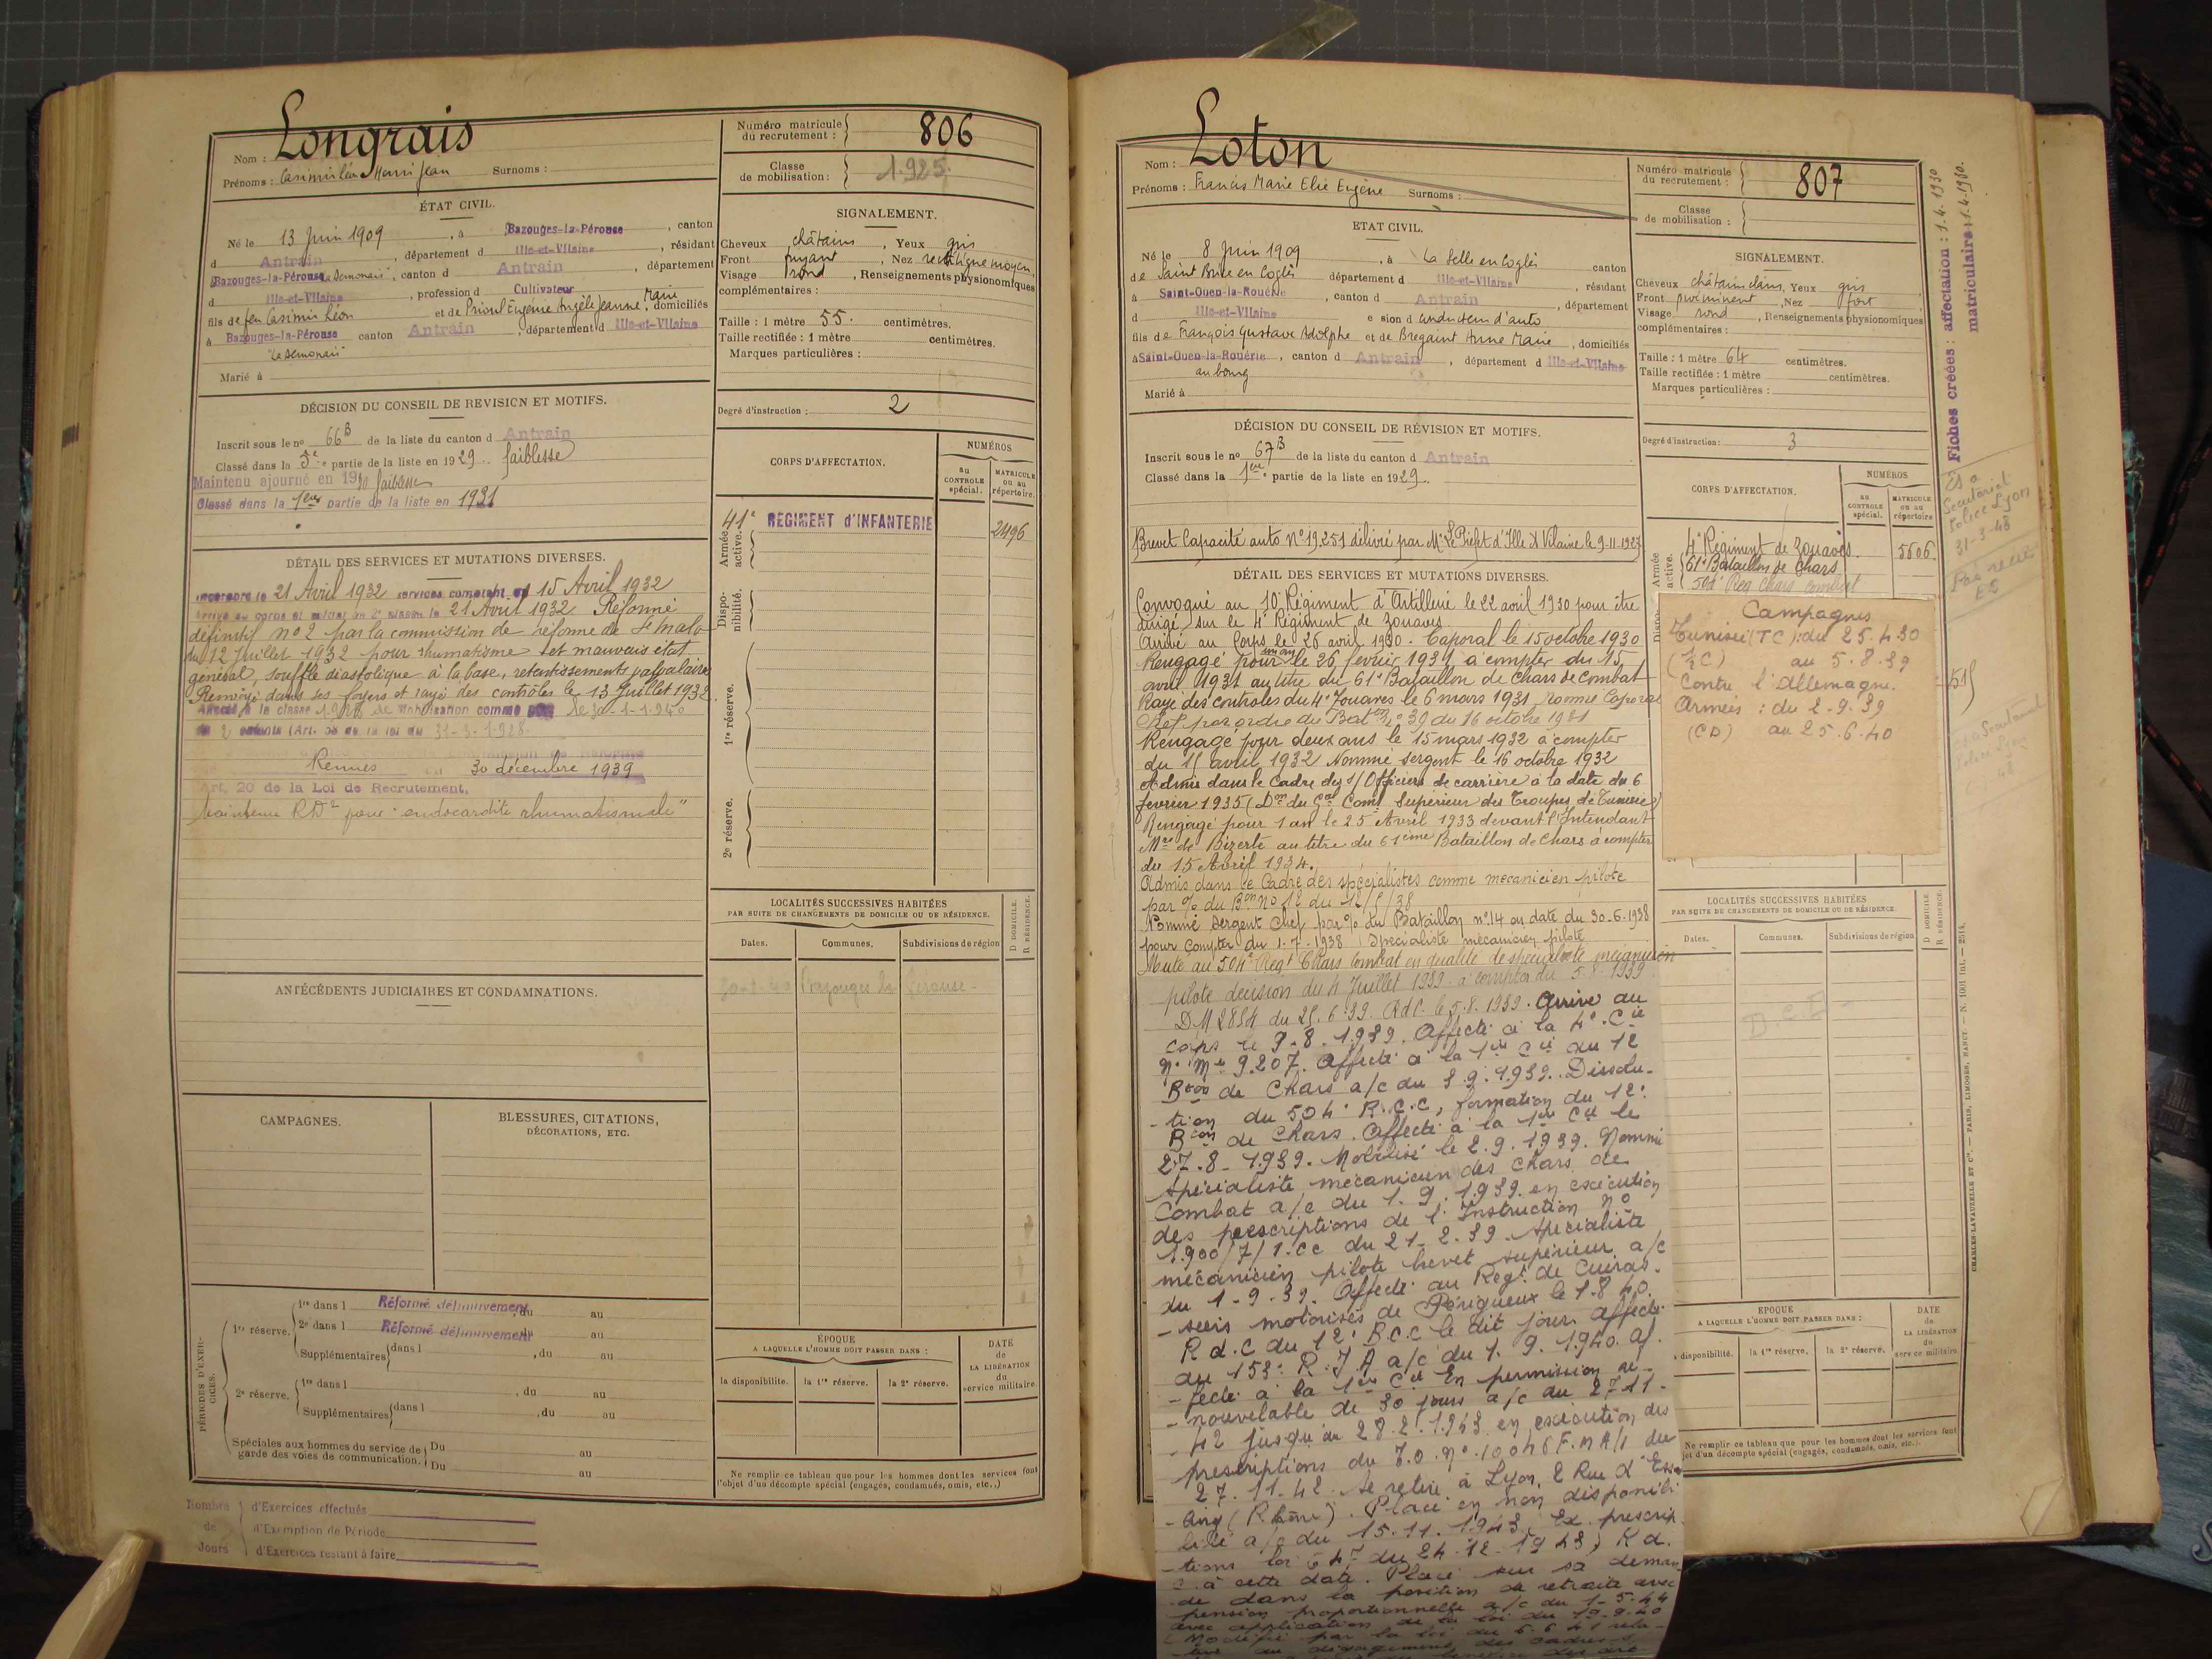 Longrais
Nom :
Prénoms : Casimir Léon Henri Jean Surnoms :
Numéro matricule du recrutement : 806
Classe de mobilisation : 1.925.
ÉTAT CIVIL.
Né le 13 Juin 1909, à Bazouges-la-Pérouse, canton
d Antrain, département d Ille-et-Vilaine, résidant
à Bazouges-la-Pérouse, canton d Antrain, département
d Ille-et-Vilaine, profession d Cultivateur
fils de feu Casimir Léon et de Prioul Eugénie Angèle Jeanne Marie, domiciliés
à Bazouges-la-Pérouse canton Antrain, département d Ille-et-Vilaine
Marié à
SIGNALEMENT.
Cheveux châtains, Yeux gris
Front fuyant, Nez rectiligne moyen,
Visage rond, Renseignements physionomiques
complémentaires :
Taille : 1 mètre 55. centimètres.
Taille rectifiée : 1 mètre centimètres.
Marques particulières :
DÉCISION DU CONSEIL DE REVISION ET MOTIFS.
Inscrit sous le nº 66 B de la liste du canton d Antrain
Classé dans la 5e partie de la liste en 1929. faiblesse
Maintenu ajourné en 1930 faiblesse
Classé dans la 1ere partie de la liste en 1931
Degré d'instruction : 2
CORPS D'AFFECTATION.
NUMÉROS
au CONTROLE spécial.
MATRICULE ou au répertoire.
Armée active.
41e REGIMENT d'INFANTERIE 2496
Disponibilité.
1re réserve.
2e réserve.
DÉTAIL DES SERVICES ET MUTATIONS DIVERSES.
Incorporé le 21 Avril 1932 services comptant du 15 Avril 1932
Arrivé au corps et soldat de 2e classe le 21 Avril 1932 Réformé
définitif nº 2 par la commission de réforme de St Malo
du 12 Juillet 1932 pour rhumatisme et mauvais état
général, souffle diastolique à la base, retentissements valvulaires
Renvoyé dans ses foyers et rayé des contrôles le 13 Juillet 1932
Affecté à la classe 1925 de Mobilisation comme le 30-1-1940
de 2 enfants (Art. 58 de la loi du 31-3-1928.
Rennes du 30 décembre 1939
Art. 20 de la Loi de Recrutement,
Maintenu RD2 pour "endocardite rhumatismale"
ANTÉCÉDENTS JUDICIAIRES ET CONDAMNATIONS.
CAMPAGNES.
BLESSURES, CITATIONS,
DÉCORATIONS, ETC.
LOCALITÉS SUCCESSIVES HABITÉES
PAR SUITE DE CHANGEMENTS DE DOMICILE OU DE RÉSIDENCE.
D DOMICILE.
R RÉSIDENCE.
Dates. Communes. Subdivisions de région
Bazouges la Pérouse
PÉRIODES D'EXERCICES.
1re réserve.
1re dans l Réformé définitivement, du au
2e dans l Réformé définitivement, du au
Supplémentaires dans l, du au
2e réserve.
1re dans l, du au
Supplémentaires dans l, du au
Spéciales aux hommes du service de
garde des voies de communication.
Du au
Du au
ÉPOQUE
A LAQUELLE L'HOMME DOIT PASSER DANS :
la disponibilité. la 1re réserve. la 2e réserve.
DATE de LA LIBÉRATION du service militaire.
Ne remplir ce tableau que pour les hommes dont les services font
l'objet d'un décompte spécial (engagés, condamnés, omis, etc..)
Nombre de Jours
d'Exercices effectués
d'Exemption de Période
d'Exercices restant à faire
Loton
Nom :
Prénoms : Francis Marie Elie Eugène Surnoms :
Numéro matricule du recrutement : 807
Classe de mobilisation :
ETAT CIVIL.
Né le 8 Juin 1909, à La Selle en Coglès canton
de Saint Brice en Coglès département d Ille-et-Vilaine, résidant
à Saint-Ouen-la-Rouërie, canton d Antrain, département
d Ille-et-Vilaine e sion d conducteur d'auto
fils de François Gustave Adolphe et de Bregaint Anne Marie, domiciliés
à Saint-Ouen-la-Rouërie, canton d Antrain, département d Ille-et-Vilaine
au bourg
Marié à
SIGNALEMENT.
Cheveux châtain clairs, Yeux gris
Front proéminent, Nez fort
Visage rond, Renseignements physionomiques
complémentaires :
Taille : 1 mètre 64 centimètres.
Taille rectifiée : 1 mètre centimètres.
Marques particulières :
Fiches créées : affectation : 1.4.1930
matriculaire : 1.4.1930.
DÉCISION DU CONSEIL DE RÉVISION ET MOTIFS.
Inscrit sous le nº 67 B de la liste du canton d Antrain
Classé dans la 1ere partie de la liste en 1929.
Brevet Capacité auto Nº 19.251 délivré par Mr Le Préfet d'Ille & Vilaine le 9-11-1927
Degré d'instruction : 3
CORPS D'AFFECTATION.
NUMÉROS
au CONTROLE spécial.
MATRICULE ou au répertoire
Armée active.
4e Régiment de Zouaves. 5606.
61e Bataillon de Chars
504e Reg Chars Combat
Secrétariat
Police Lyon
31-3-48
DÉTAIL DES SERVICES ET MUTATIONS DIVERSES.
Convoqué au 10e Régiment d'Artillerie le 22 avril 1930 pour être
dirigé sur le 4e Régiment de Zouaves
Arrivé au Corps le 26 avril 1930. Caporal le 15 octobre 1930
Rengagé pour un an le 26 février 1931 à compter du 15
avril 1931 au titre du 61e Bataillon de Chars de Combat
Rayé des contrôles du 4e Zouaves le 6 mars 1931 Nommé Caporal
Chef par ordre du Baton nº 39 du 16 octobre 1931
Rengagé pour deux ans le 15 mars 1932 à compter
du 15 avril 1932 Nommé sergent le 16 octobre 1932
Admis dans le Cadre des s/Officiers de carrière à la date du 6
février 1935 (Don du Gal Comt Supérieur des Troupes de Tunisie)
Rengagé pour 1 an le 25 Avril 1933 devant l'Intendant
Mre de Bizerte au titre du 61ème Bataillon de Chars à compter
du 15 Avril 1934.
Admis dans le Cadre des spécialistes comme mécanicien pilote
par % du Bon no 12 du 12/5/38
Nommé Sergent Chef par % du Bataillon nº 14 en date du 30-6-1938
pour compter du 1-7-1938 Spécialiste mécanicien pilote
Muté au 504e Regt Chars Combat en qualité de spécialiste mécanicien
pilote décision du 4 Juillet 1939 à compter du 5.8.1939
DM 2854 du 25.6.39. RdC le 5.8.1939. Arrivé au
corps le 9-8-1939. Affecté à la 4e Cie
Nº Me 9.207. Affecté à la 1ere Cie du 12
Bton de Chars a/c du 2.9.1939. Dissolu-
-tion du 504e R.C.C, formation du 12e
Bton de Chars. Affecté à la 1ere Cie le
27.8-1939. Mobilisé le 2.9.1939. Nommé
Spécialiste mécanicien des chars de
Combat a/c du 1.9.1939. en exécution
des prescriptions de l'Instruction nº
1.900/7/1.CC du 21-2-39. Spécialiste
mécanicien pilote brevet supérieur a/c
du 1-9-39. Affecté au Regt de Cuiras-
-siers motorisés de Périgueux le 1.8.40.
R d.C du 12e B.C.C le dit jour. Affecté
au 153e R.I.A a/c du 1.9.1940. Af-
-fecté à la 1ere Cie En permission re-
-nouvelable de 30 jours a/c du 27.11-
-42 jusqu'au 28.2.1943 en exécution des
prescriptions du T.O. Nº 10046 F.MA/1 du
27.11.42. Se retire à Lyon, 2 Rue d'
(Rhône). Placé en non disponibi-
lité a/c du 15.11.1943 (Ex. prescrip-
-tions loi 647 du 24.12-1943) R d.
C à cette date. Placé sur sa deman-
-de dans la position de retraite avec
pension proportionnelle a/c du 1-5-44
avec application de la loi du 19-9-40
(Modifié par la loi du 6.6.41 rela-
-tive au dégagement des cadres
Campagnes
Tunisie (TC) : du 25.4.30
(½C) au 5.8.39
Contre l'Allemagne.
Armées : du 2.9.39
(CD) au 25.6.40
LOCALITÉS SUCCESSIVES HABITÉES
PAR SUITE DE CHANGEMENTS DE DOMICILE OU DE RÉSIDENCE.
D DOMICILE
R RÉSIDENCE.
Dates. Communes. Subdivisions de région
EPOQUE
A LAQUELLE L'HOMME DOIT PASSER DANS :
disponibilité. la 1re réserve. la 2e réserve.
DATE de LA LIBÉRATION du service militaire
Ne remplir ce tableau que pour les hommes dont les services font
jet d'un décompte spécial (engagés, condamnés, omis, etc.).
CHARLES-LAVAUZELLE ET Cie. — PARIS, LIMOGES, NANCY — N. 1001 Int. — 2514.